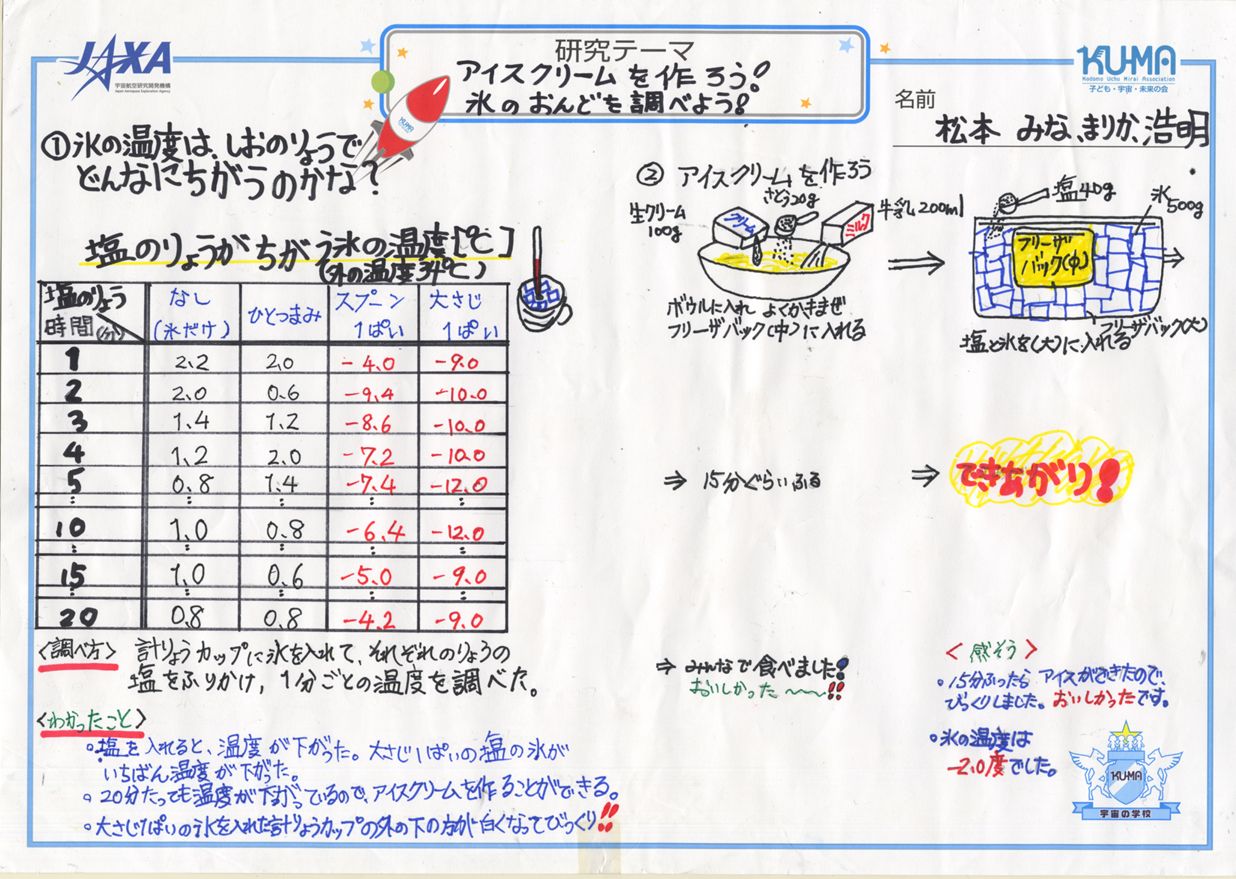 JAXA
宇宙航空研究開発機構
Japan Aerospace Exploration Agency
研究テーマ
アイスクリームを作ろう!
氷のおんどを調べよう!
KU-MA
Kodomo Uchu Mirai Association
子ども・宇宙・未来の会
名前
松本 みな、まりか、浩明
KU-MA
①氷の温度は、しおのりょうで
どんなにちがうのかな?
塩のりょうがちがう氷の温度[℃]
(外の温度34℃)
塩のりょう なし ひとつまみ スプーン 大さじ
時間(分) (氷だけ) 1ぱい 1ぱい
1 2.2 2.0 -4.0 -9.0
2 2.0 0.6 -9.4 -10.0
3 1.4 1.2 -8.6 -10.0
4 1.2 2.0 -7.2 -10.0
5 0.8 1.4 -7.4 -12.0
10 1.0 0.8 -6.4 -12.0
15 1.0 0.6 -5.0 -9.0
20 0.8 0.8 -4.2 -9.0
<調べ方> 計りょうカップに氷を入れて、それぞれのりょうの
塩をふりかけ、1分ごとの温度を調べた。
<わかったこと>
。塩を入れると、温度が下がった。大さじ1ぱいの塩の氷が
いちばん温度が下がった。
。20分たっても温度が下がっているので、アイスクリームを作ることができる。
。大さじ1ぱいの氷を入れた計りょうカップの外の下の方が白くなってびっくり!!
② アイスクリームを作ろう
生クリーム
100g
クリーム
さとう20g
ミルク
牛乳200ml
ボウルに入れ よくかきまぜ
フリーザバック(中)に入れる
⇒
塩40g
氷
500g
フリーザ
バック(中)
フリーザバック(大)
塩と氷を(大)に入れる
⇒ 15分ぐらいふる
⇒ できあがり!
⇒ みんなで食べました!
おいしかった〜〜!!
<感そう>
。15分ふったら アイスができたので、
びっくりしました。おいしかったです。
。氷の温度は
-2.0度でした。
KU-MA
宇宙の学校